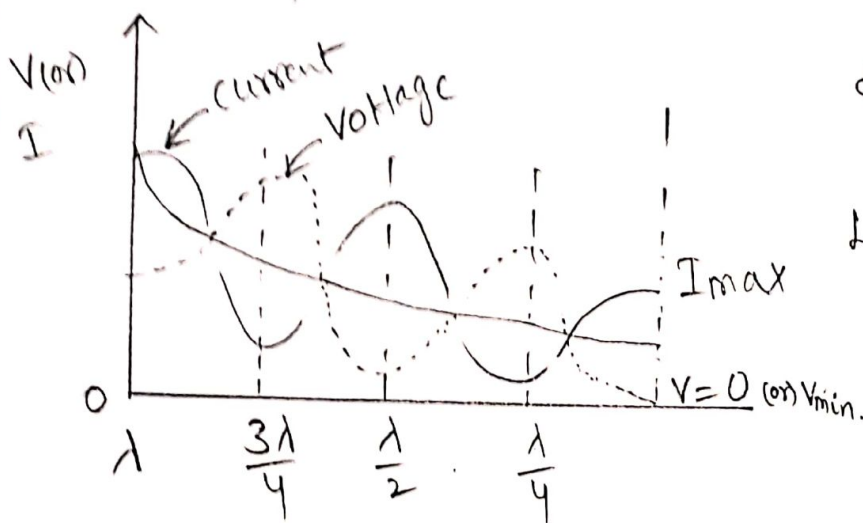 V(or)
I
Current
Voltage
I max
V = 0 (or) Vmin.
0
λ
3λ/4
λ/2
λ/4